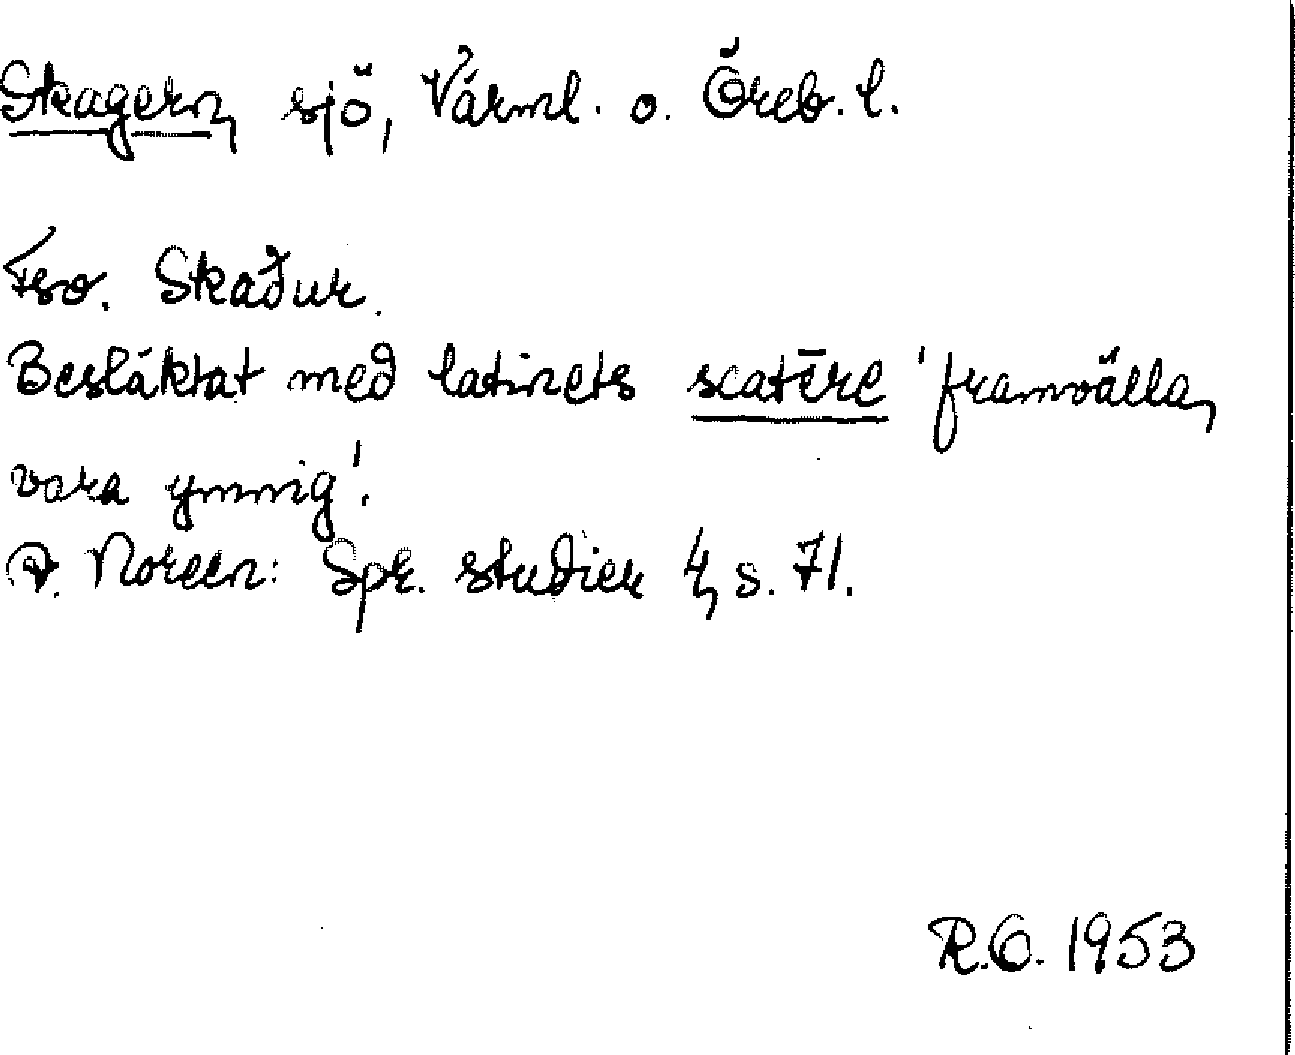 Skagern, sjö, Värml. o. Öreb. l.
Fsv. Skaður.
Besläktat med latinets scatēre 'framvälla,
vara ymnig'.
A. Noreen: Spr. studier 4, s. 71.
R.O. 1953